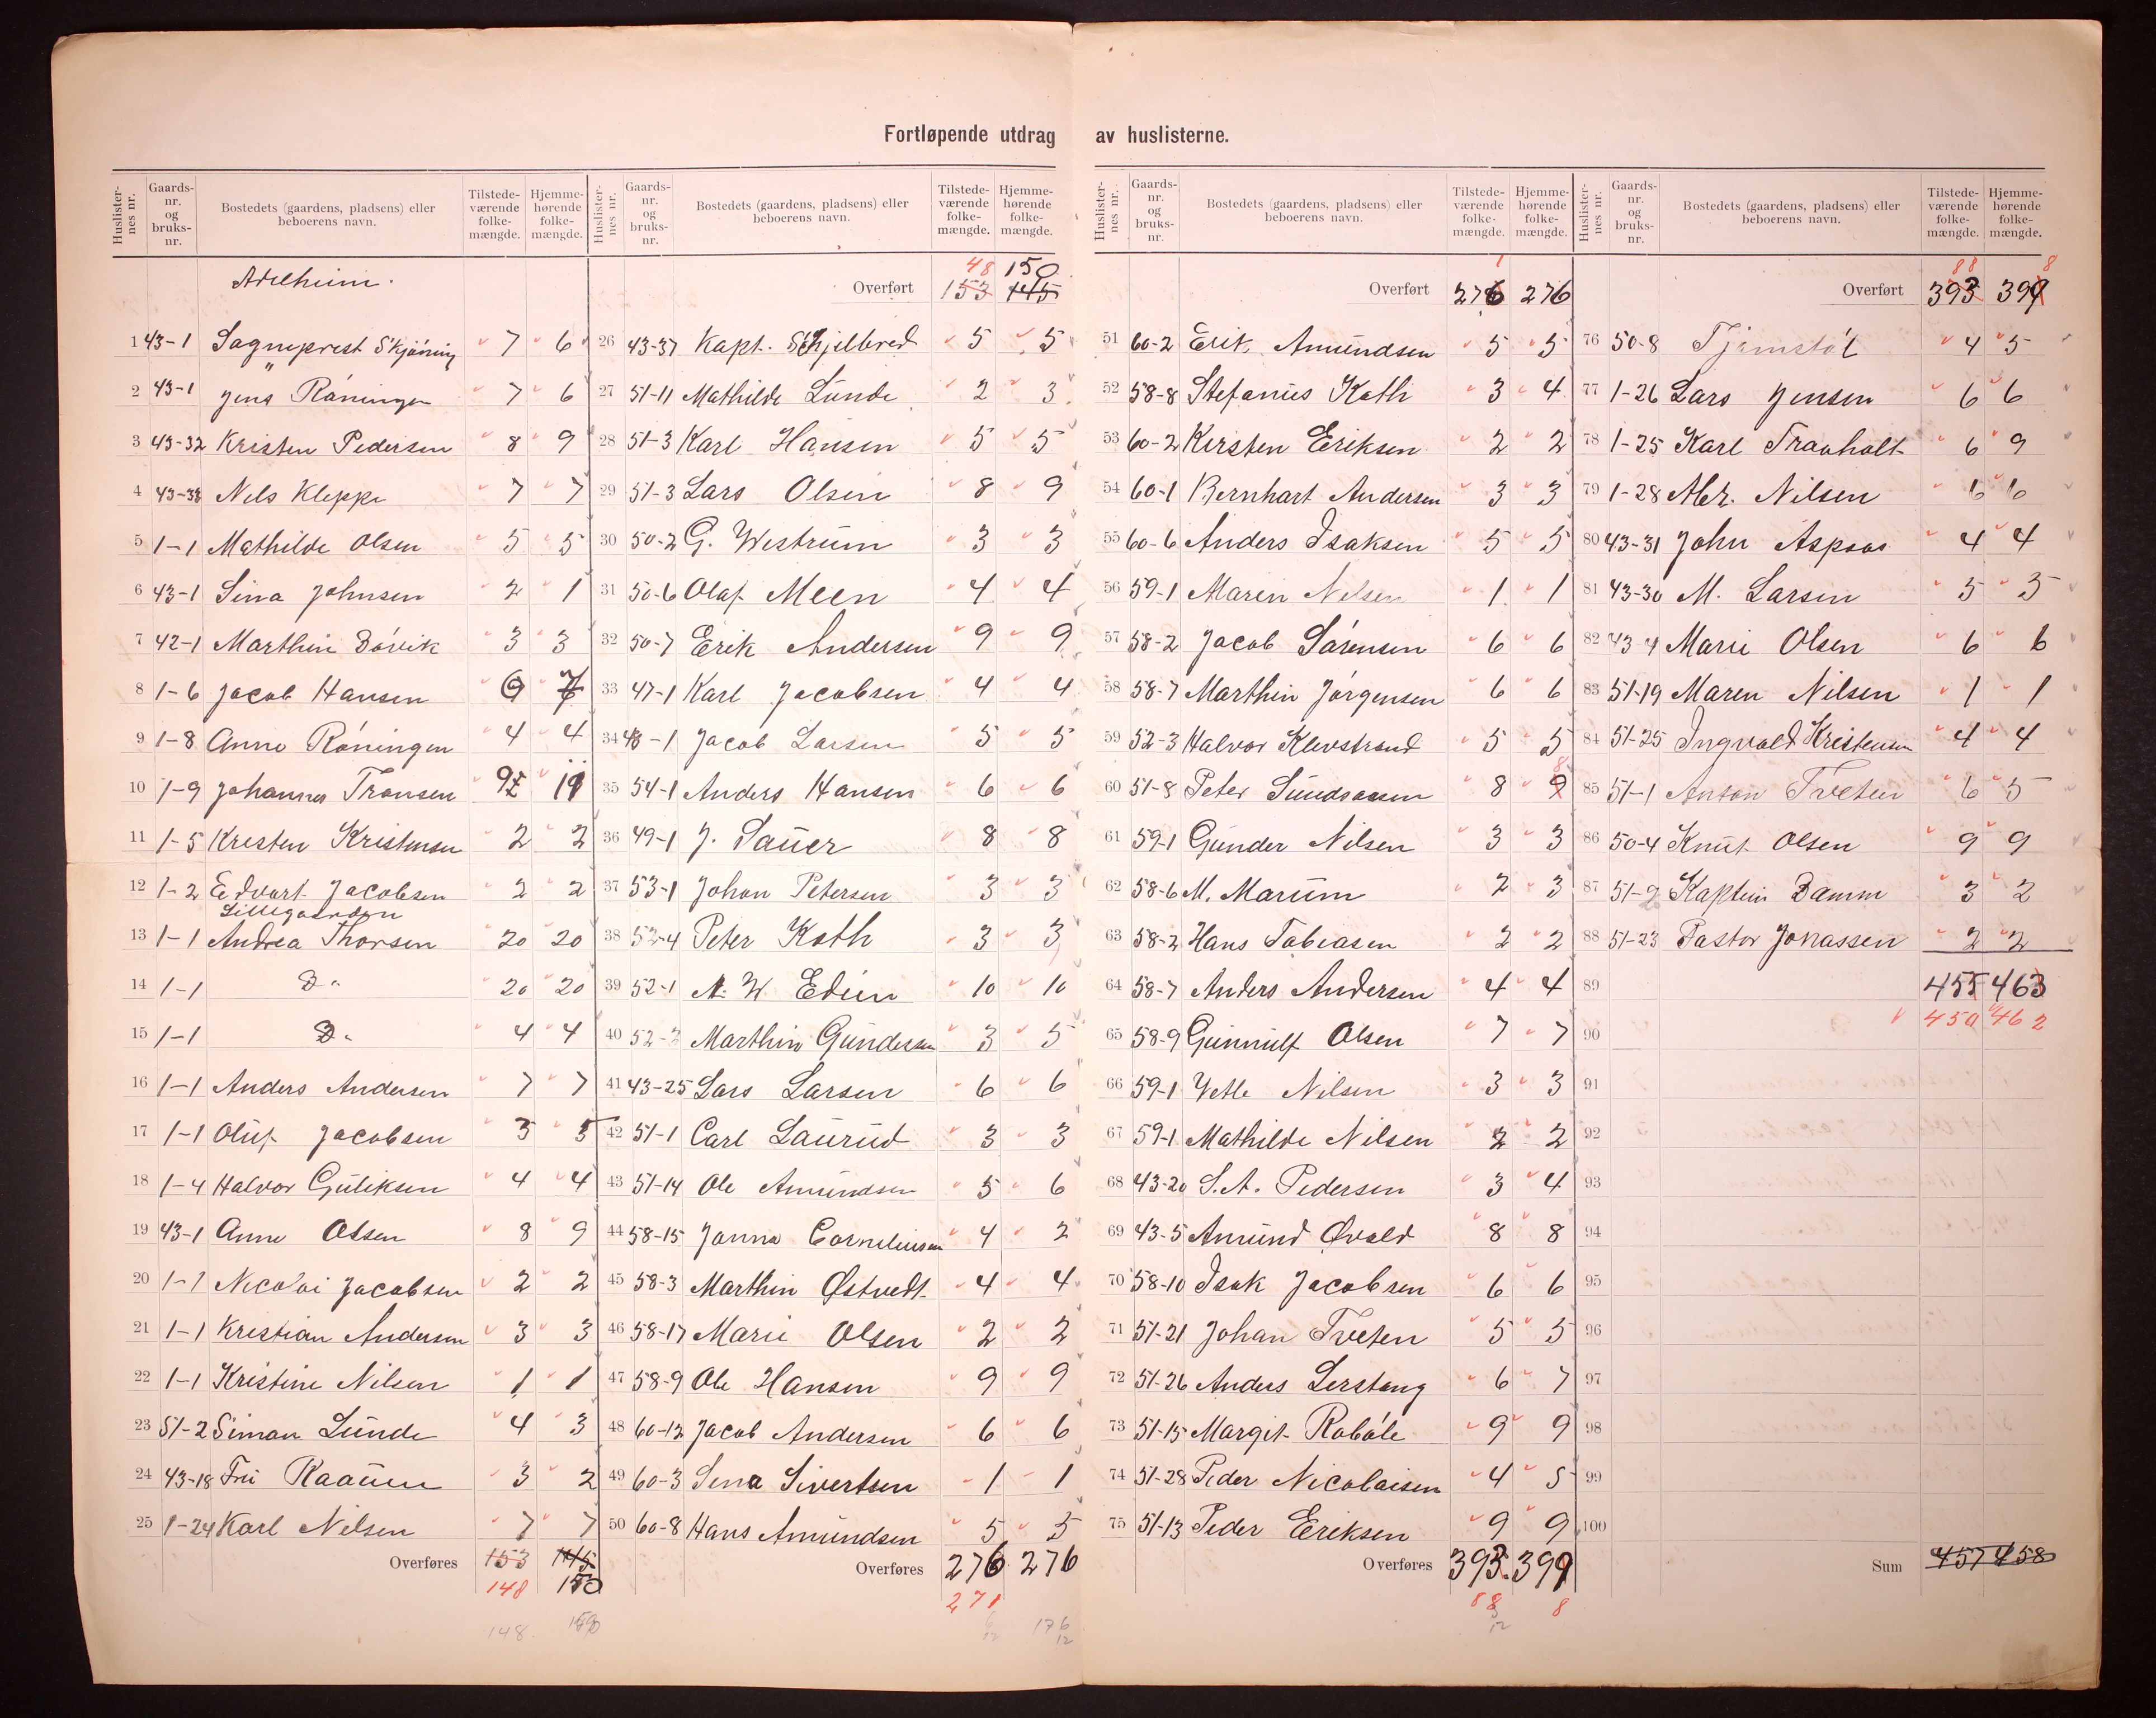 Fortløpende utdrag av huslisterne.
Huslisternes nr. Gaards-nr. og bruks-nr. Bostedets (gaardens, pladsens) eller beboerens navn. Tilstedeværende folkemængde. Hjemmehørende folkemængde.
Adelheim.
1 43-1 Sogneprest Skjöring 7 6
2 43-1 Jens Röningen 7 6
3 43-32 Kristen Pedersen 8 9
4 43-38 Nels Kleppe 7 7
5 1-1 Mathilde Olsen 5 5
6 43-1 Sina Johnsen 2 1
7 42-1 Marthin Dövik 3 3
8 1-6 Jacob Hansen
9 1-8 Anne Röningen 4 4
10 1-9 Johannes Transen
11 1-5 Kristen Kristensen 2 2
12 1-2 Edvart Jacobsen 2 2
Lillegaarden
13 1-1 Andrea Thorsen 20 20
14 1-1 Do 20 20
15 1-1 Do 4 4
16 1-1 Anders Andersen 7 7
17 1-1 Oluf Jacobsen 3 5
18 1-4 Halvor Guliksen 4 4
19 43-1 Anne Olsen 8 9
20 1-1 Nicolai Jacobsen 2 2
21 1-1 Kristian Andersen 3 3
22 1-1 Kristine Nilsen 1 1
23 51-2 Simon Lunde 4 3
24 43-18 Fru Raauen 3 2
25 1-24 Karl Nilsen 7 7
Overføres 153 145
148 150
148. 150
Huslisternes nr. Gaards-nr. og bruks-nr. Bostedets (gaardens, pladsens) eller beboerens navn. Tilstedeværende folkemængde. Hjemmehørende folkemængde.
48 150
Overført 153 145
26 43-37 Kapt. Skjelbred 5 5
27 51-11 Mathilde Lunde 2 3
28 51-3 Karl Hansen 5 5
29 51-3 Lars Olsen 8 9
30 50-2 G. Westrum 3 3
31 50-6 Olaf Meen 4 4
32 50-7 Erik Andersen 9 9
33 47-1 Karl Jacobsen 4 4
34 48-1 Jacob Larsen 5 5
35 54-1 Anders Hansen 6 6
36 49-1 J. Sauer 8 8
37 53-1 Johan Petersen 3 3
38 52-4 Peter Kath 3 3
39 52-1 N. W. Edin 10 10
40 52-3 Marthin Gundersen 3 5
41 43-25 Lars Larsen 6 6
42 51-1 Carl Laurud 3 3
43 51-14 Ole Amundsen 5 6
44 58-15 Janna Corneliusen 4 2
45 58-3 Marthin Østvedt 4 4
46 58-17 Marie Olsen 2 2
47 58-9 Ole Hansen 9 9
48 60-12 Jacob Andersen 6 6
49 60-3 Sina Sivertsen 1 1
50 60-8 Hans Amundsen 5 5
Overføres 276 276
271
6 176
12 12
Huslisternes nr. Gaards-nr. og bruks-nr. Bostedets (gaardens, pladsens) eller beboerens navn. Tilstedeværende folkemængde. Hjemmehørende folkemængde.
1
Overført 276 276
51 60-2 Erik Amundsen 5 5
52 58-8 Stefanus Kath 3 4
53 60-2 Kirsten Eriksen 2 2
54 60-1 Bernhart Andersen 3 3
55 60-6 Anders Isaksen 5 5
56 59-1 Maren Nilsen 1 1
57 58-2 Jacob Sörensen 6 6
58 58-7 Marthin Jörgensen 6 6
59 52-3 Halvor Klevstrand 5 5
8
60 51-8 Peter Sundsaasen 8 9
61 59-1 Gunder Nilsen 3 3
62 58-6 M. Marum 2 3
63 58-2 Hans Tobiasen 2 2
64 58-7 Anders Andersen 4 4
65 58-9 Gunnulf Olsen 7 7
66 59-1 Vetle Nilsen 3 3
67 59-1 Mathilde Nilsen 2 2
68 43-20 S. A. Pedersen 3 4
69 43-5 Amund Øvald 8 8
70 58-10 Isak Jacobsen 6 6
71 51-21 Johan Tveten 5 5
72 51-26 Anders Lerstang 6 7
73 51-15 Margit Raböle 9 9
74 51-28 Peder Nicolaisen 4 5
75 51-13 Peder Eriksen 9 9
Overføres 393 399
88 8
12
Huslisternes nr. Gaards-nr. og bruks-nr. Bostedets (gaardens, pladsens) eller beboerens navn. Tilstedeværende folkemængde. Hjemmehørende folkemængde.
88 8
Overført 393 399
76 50-8 Tjömstöl 4 5
77 1-26 Lars Jensen 6 6
78 1-25 Karl Traaholt 6 9
79 1-28 Abr. Nilsen 6 6
80 43-31 John Aspaas 4 4
81 43-30 M. Larsen 5 5
82 43-4 Marie Olsen 6 6
83 51-19 Maren Nilsen 1 1
84 51-25 Ingvald Kristensen 4 4
85 51-1 Anton Tveten 6 5
86 50-4 Knut Olsen 9 9
87 51-9 Kaptein Damm 3 2
88 51-23 Pastor Jonassen 2 2
89 455 463
90 450 462
91
92
93
94
95
96
97
98
99
100
Sum 457 458